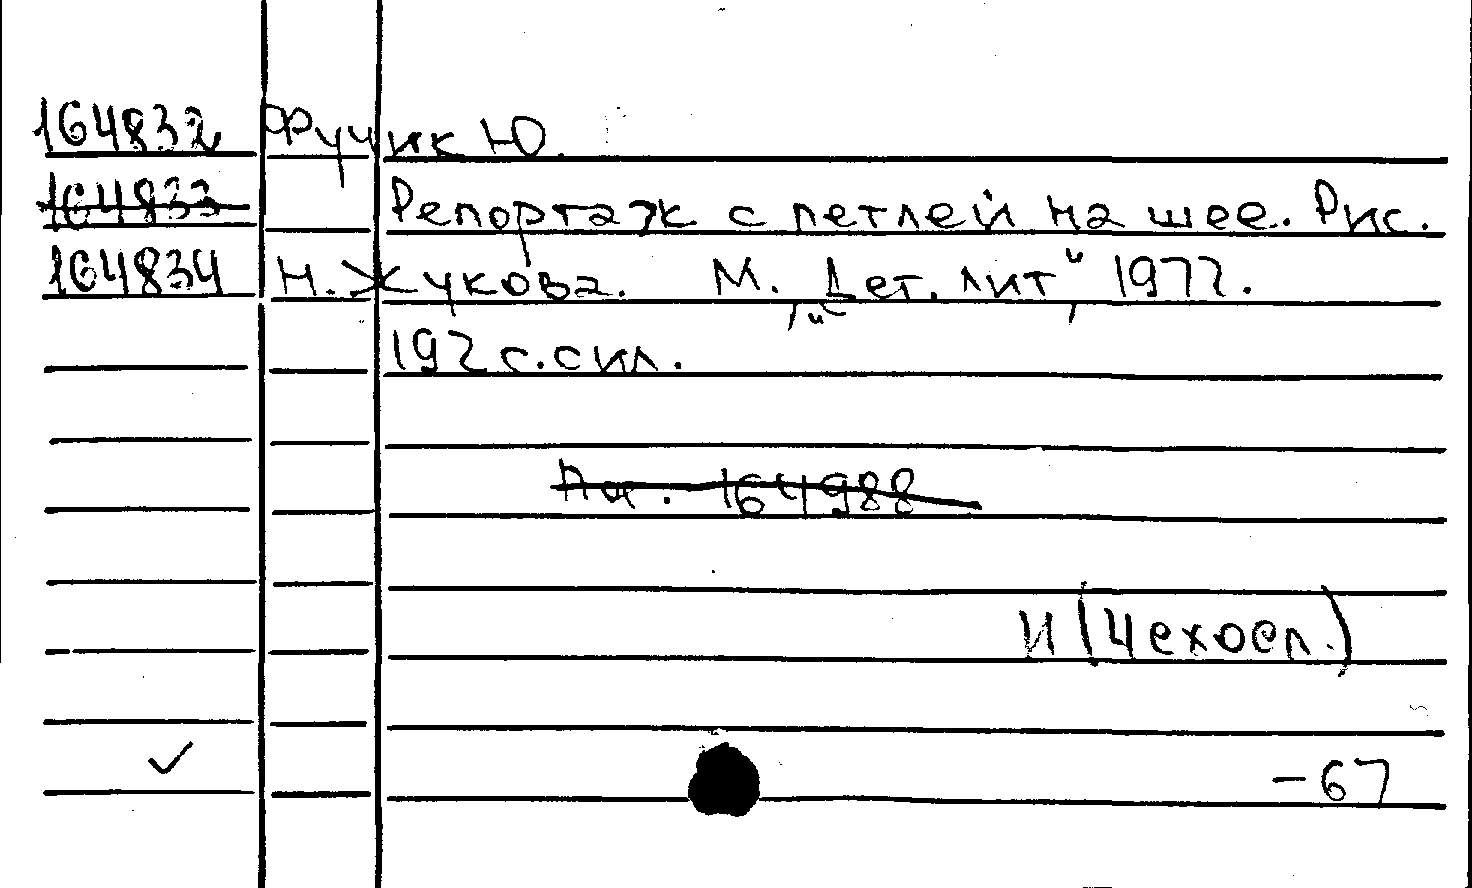 164832 Фучик Ю.
164833 Репортаж с петлей на шее. Рис.
164834 Н. Жукова. М. „Дет. лит“, 1977.
192 с. с ил.
164988
И (Чехосл.)
✓ -67